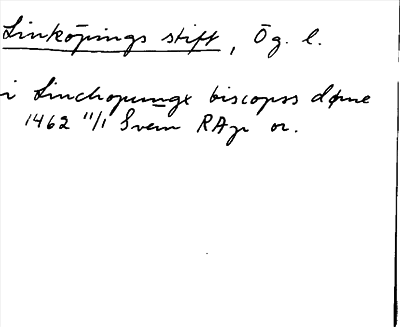 Linköpings stift, Ög. l.
i Linchopungx biscopss döme
1462 11/1 Svem RAp or.